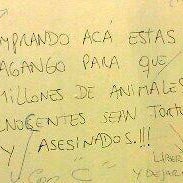 MPRANDO ACÁ ESTAS
PAGANGO PARA QUE
MILLONES DE ANIMALES
INOCENTES SEAN TORTU
Y ASESINADOS.!!!
LIBER
Y DEJAR
CON "C"